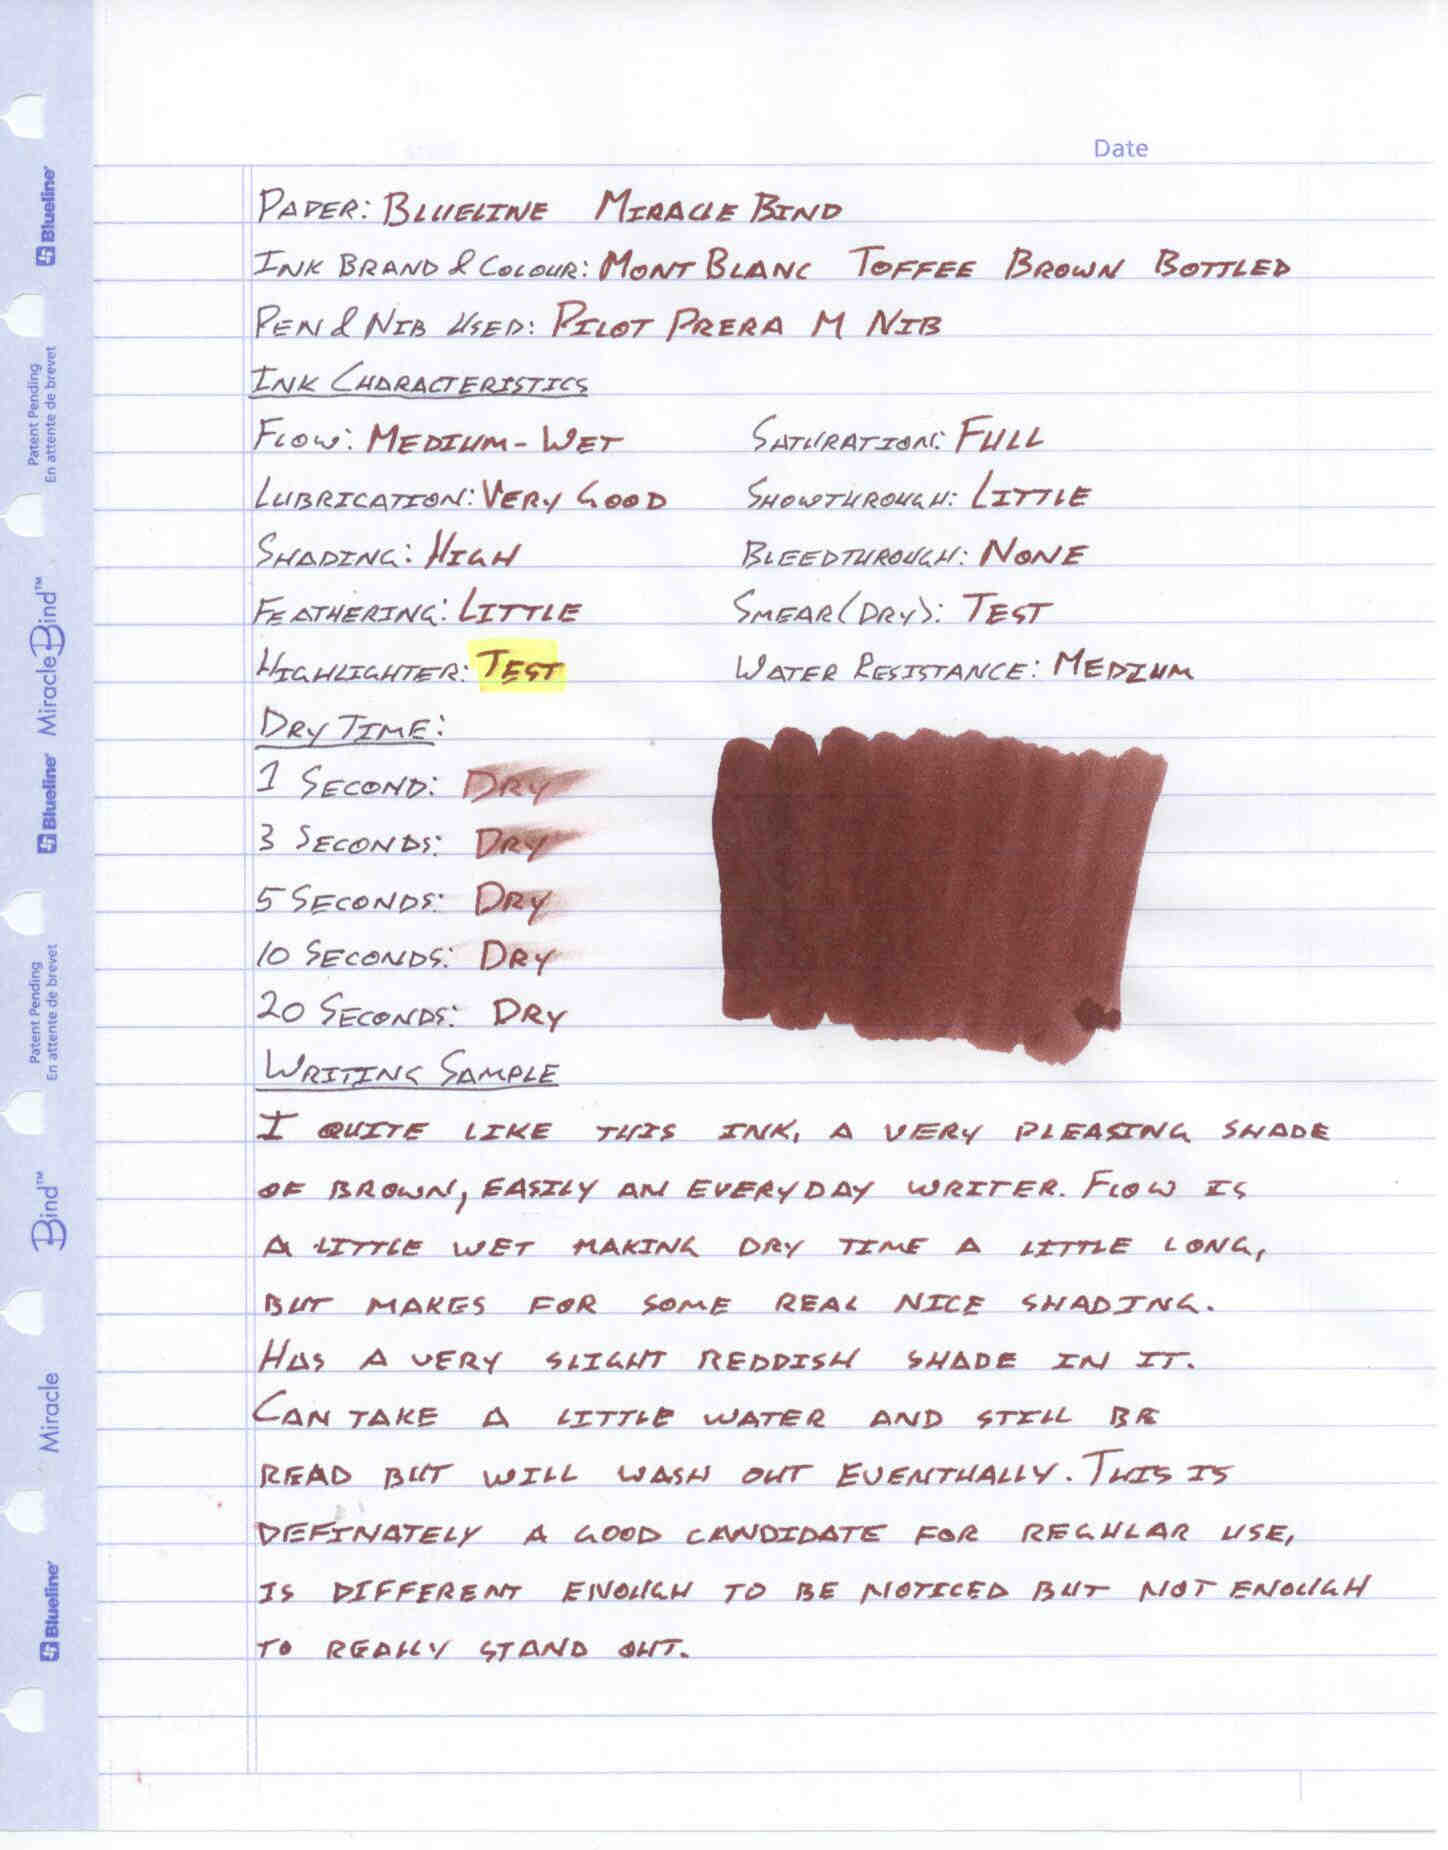 Date
PAPER: BLUELINE MIRACLE BIND
INK BRAND & COLOUR: MONT BLANC TOFFEE BROWN BOTTLED
PEN & NIB USED: PILOT PRERA M NIB
INK CHARACTERISTICS
FLOW: MEDIUM-WET SATURATION: FULL
LUBRICATION: VERY GOOD SHOWTHROUGH: LITTLE
SHADING: HIGH BLEEDTHROUGH: NONE
FEATHERING: LITTLE SMEAR (DRY): TEST
HIGHLIGHTER: TEST WATER RESISTANCE: MEDIUM
DRY TIME:
1 SECOND: DRY
3 SECONDS: DRY
5 SECONDS: DRY
10 SECONDS: DRY
20 SECONDS: DRY
WRITING SAMPLE
I QUITE LIKE THIS INK, A VERY PLEASING SHADE
OF BROWN, EASILY AN EVERYDAY WRITER. FLOW IS
A LITTLE WET MAKING DRY TIME A LITTLE LONG,
BUT MAKES FOR SOME REAL NICE SHADING.
HAS A VERY SLIGHT REDDISH SHADE IN IT.
CAN TAKE A LITTLE WATER AND STILL BE
READ BUT WILL WASH OUT EVENTUALLY. THIS IS
DEFINATELY A GOOD CANDIDATE FOR REGULAR USE,
IS DIFFERENT ENOUGH TO BE NOTICED BUT NOT ENOUGH
TO REALLY STAND OUT.
Blueline
Patent Pending
En attente de brevet
MiracleBind™
Blueline
Patent Pending
En attente de brevet
Bind™
Miracle
Blueline